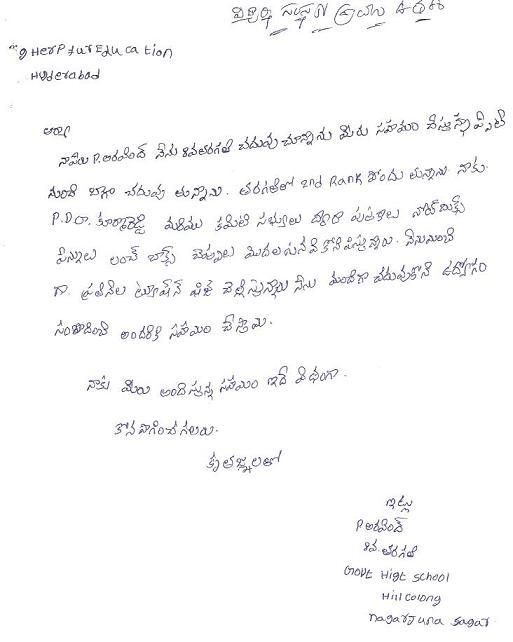 విద్యార్థి సంస్థకు
HerP FurEducation
Hyderabad
ఆర్యా
నాపేరు P.అరవింద్ నేను 8వతరగతి చదువు చూన్నాను మీరు సహయం చేస్తున్నప్పటి
నుంచి బాగా చదువు తున్నాను. తరగతిలో 2nd Rank పొందు తున్నాను. నాకు
P.D.రా. కూర్మారెడ్డి మరియు కమిటి సభ్యులు ద్వారా పుస్తకాలు నోట్ బుక్స్
పెన్నులు లంచ్ బాక్స్ చెప్పులు మొదలయినవి కోనిపిస్తున్నారు.
గా. ప్రతినెల ట్యూషన్ ఫీజు చెల్లిస్తున్నారు నేను మంచిగా చదువుకొని ఉద్యోగం
సంపాదించి అందరికి సహయం చేస్తాను.
నాకు మీరు అందిస్తున్న సహయం ఇదే విధంగా.
కోనసాగించగలరు.
కృతజ్ఞలతో
ఇట్లు
P.అరవింద్
8వ. తరగతి
Govt Higt school
Hill colong
nagarJuna sagar